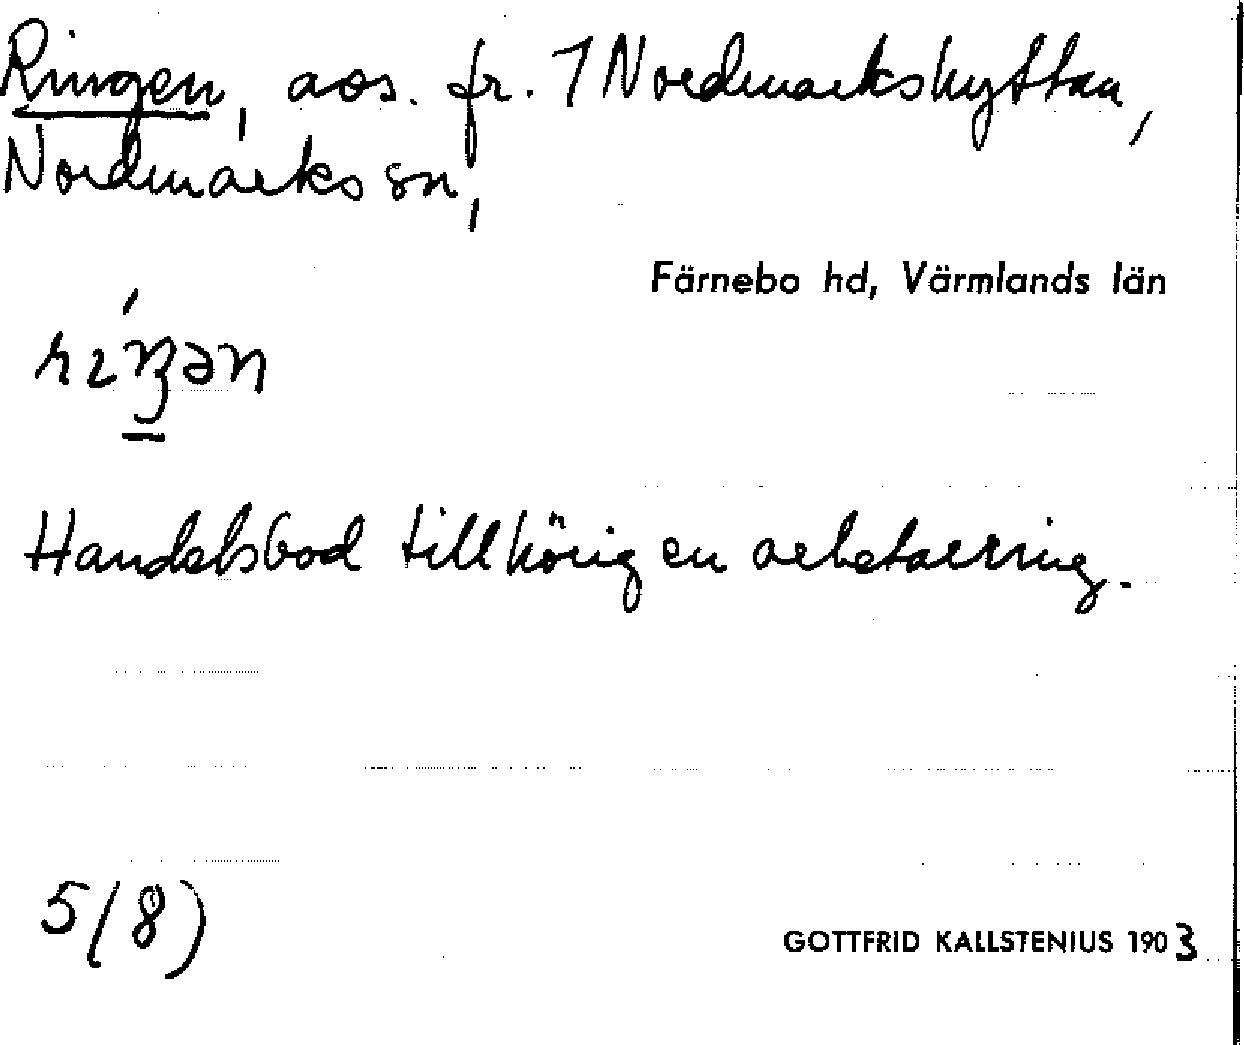 Ringen, aos. fr. 7 Nordmarkshyttan,
Nordmarks sn,
Färnebo hd, Värmlands län
Handelsbod tillhörig en arbetarring.
5(8)
GOTTFRID KALLSTENIUS 1903